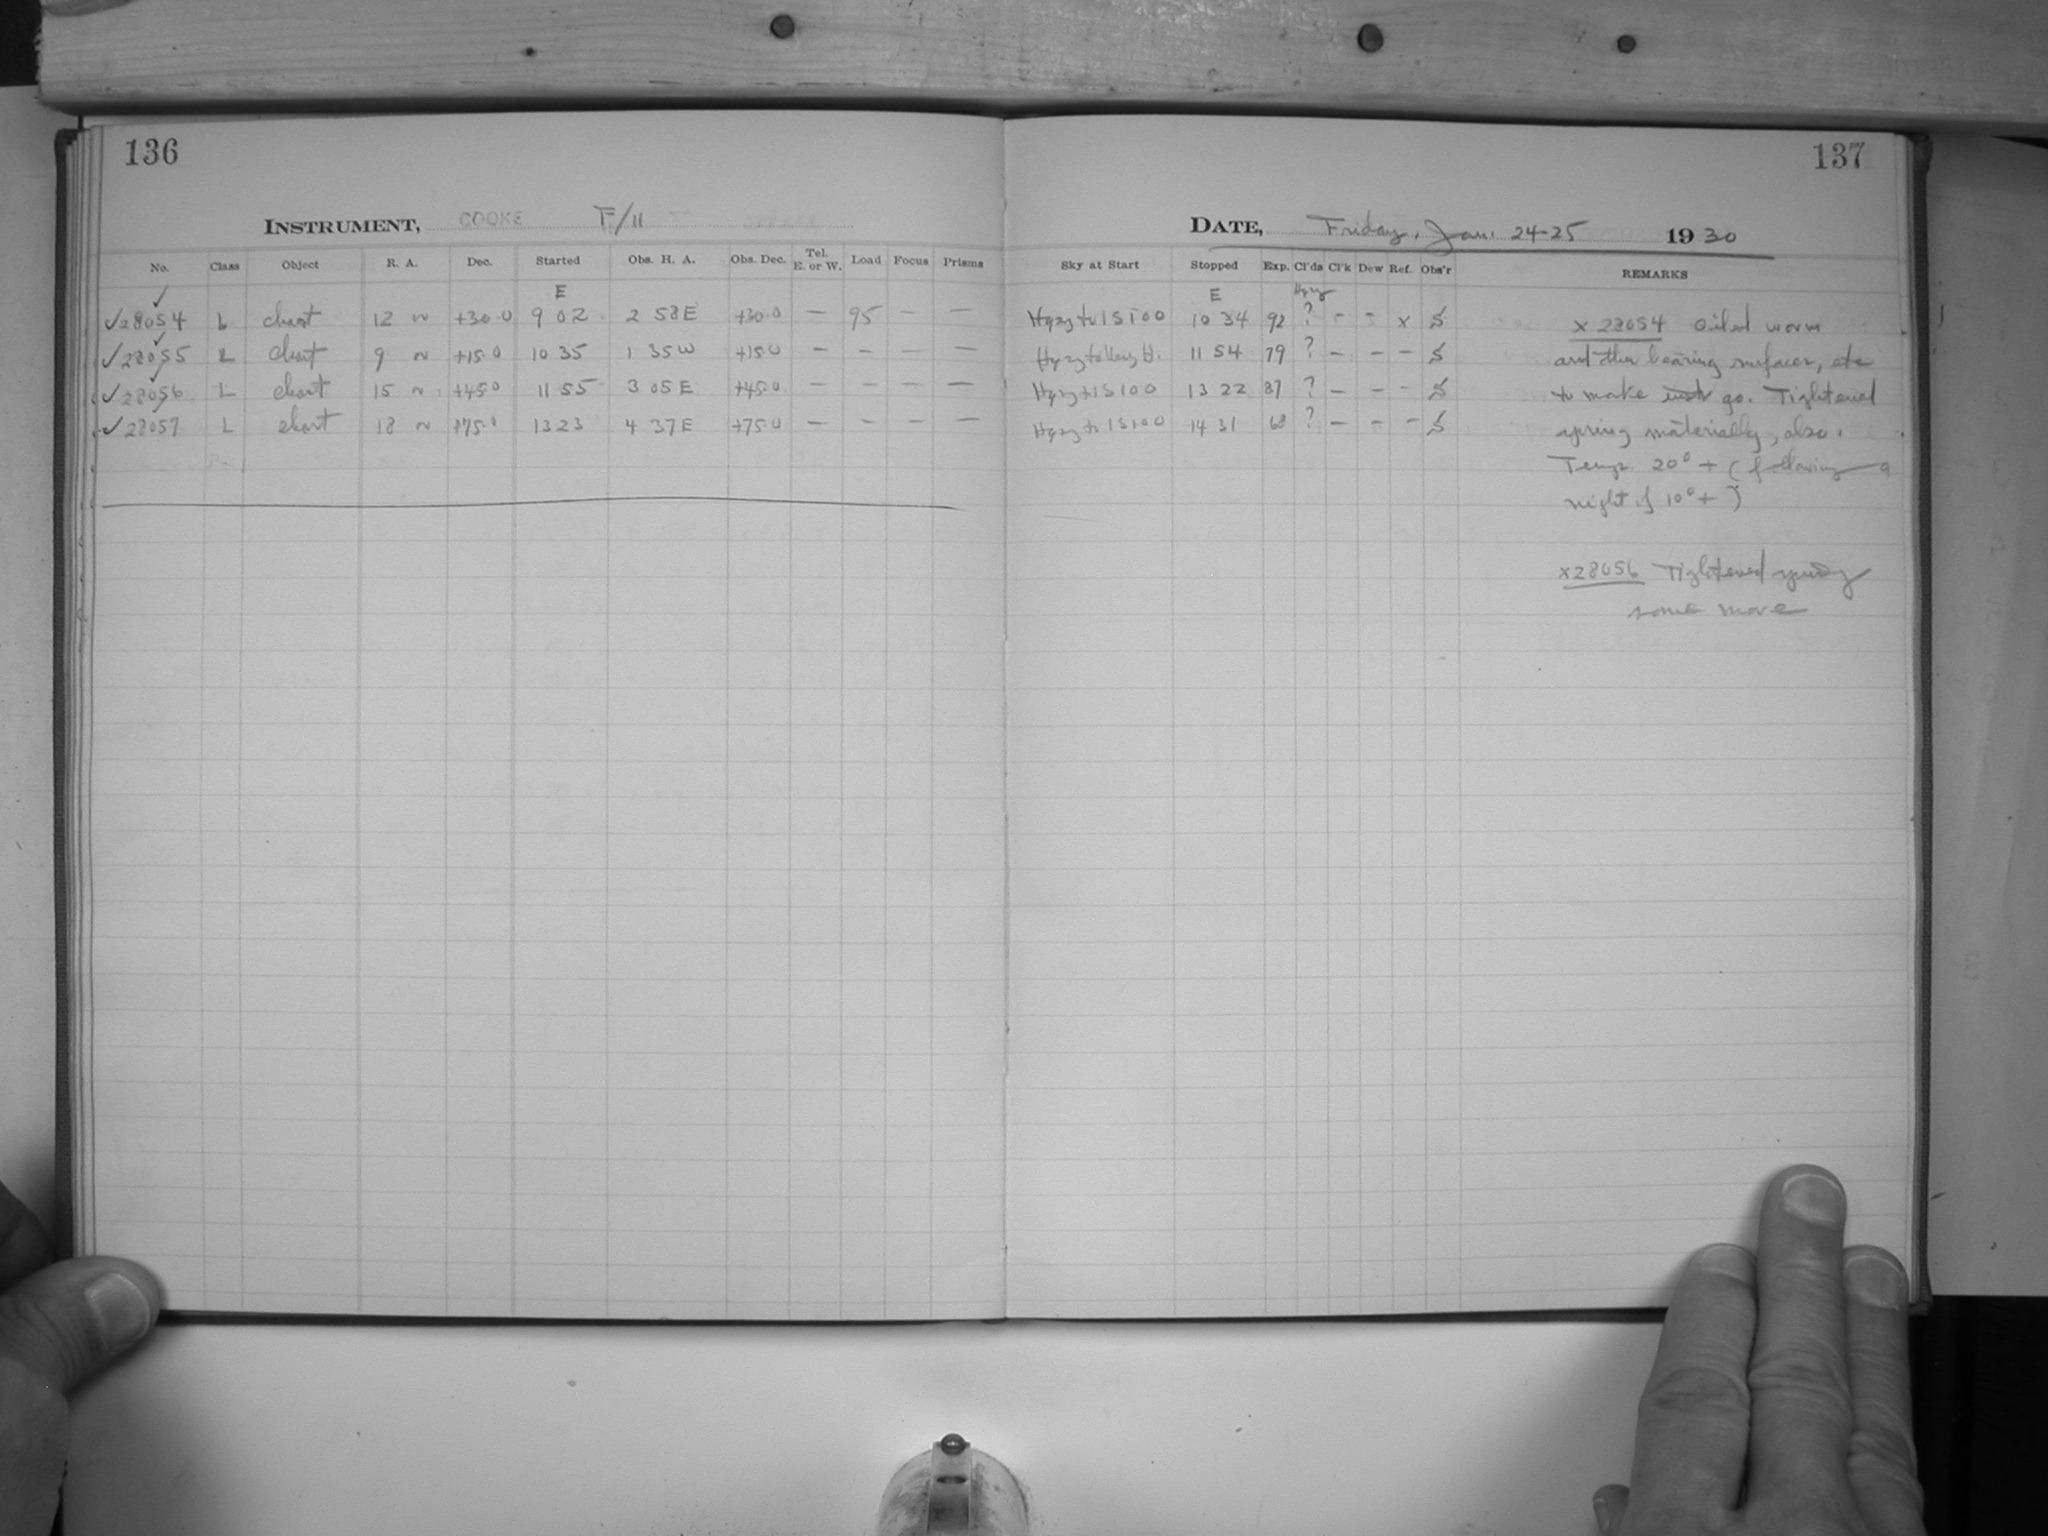 136
INSTRUMENT, COOKE F/11
No. Class Object R. A. Dec. Started Obs. H. A. Obs. Dec. Tel. E. or W. Load Focus Prisms
E
✓28054 L chart 12 n +30.0 9 02 2 58E +30.0 — 95 — —
✓28055 L chart 9 n +15.0 10 35 1 35W +15.0 — — — —
✓28056 L chart 15 n +45.0 11 55 3 05E +45.0 — — — —
✓28057 L chart 18 n +75.0 13 23 4 37E +75.0 — — — —
137
DATE, Friday, Jan. 24-25 1930
Sky at Start Stopped Exp. Cl'ds Cl'k Dew Ref. Obs'r REMARKS
E Hazy
Hazy to IS100 10 34 92 ? - - x S
Hazy to Very H. 11 54 79 ? — — — S
Hazy + IS100 13 22 87 ? — — — S
Hazy to IS100 14 31 68 ? — — — S
x 28054 Oiled worm
and other bearing surfaces, etc
to make go. Tightened
spring materially, also.
Temp. 20° + (following a
night of 10° + )
x28056 Tightened spring
some more